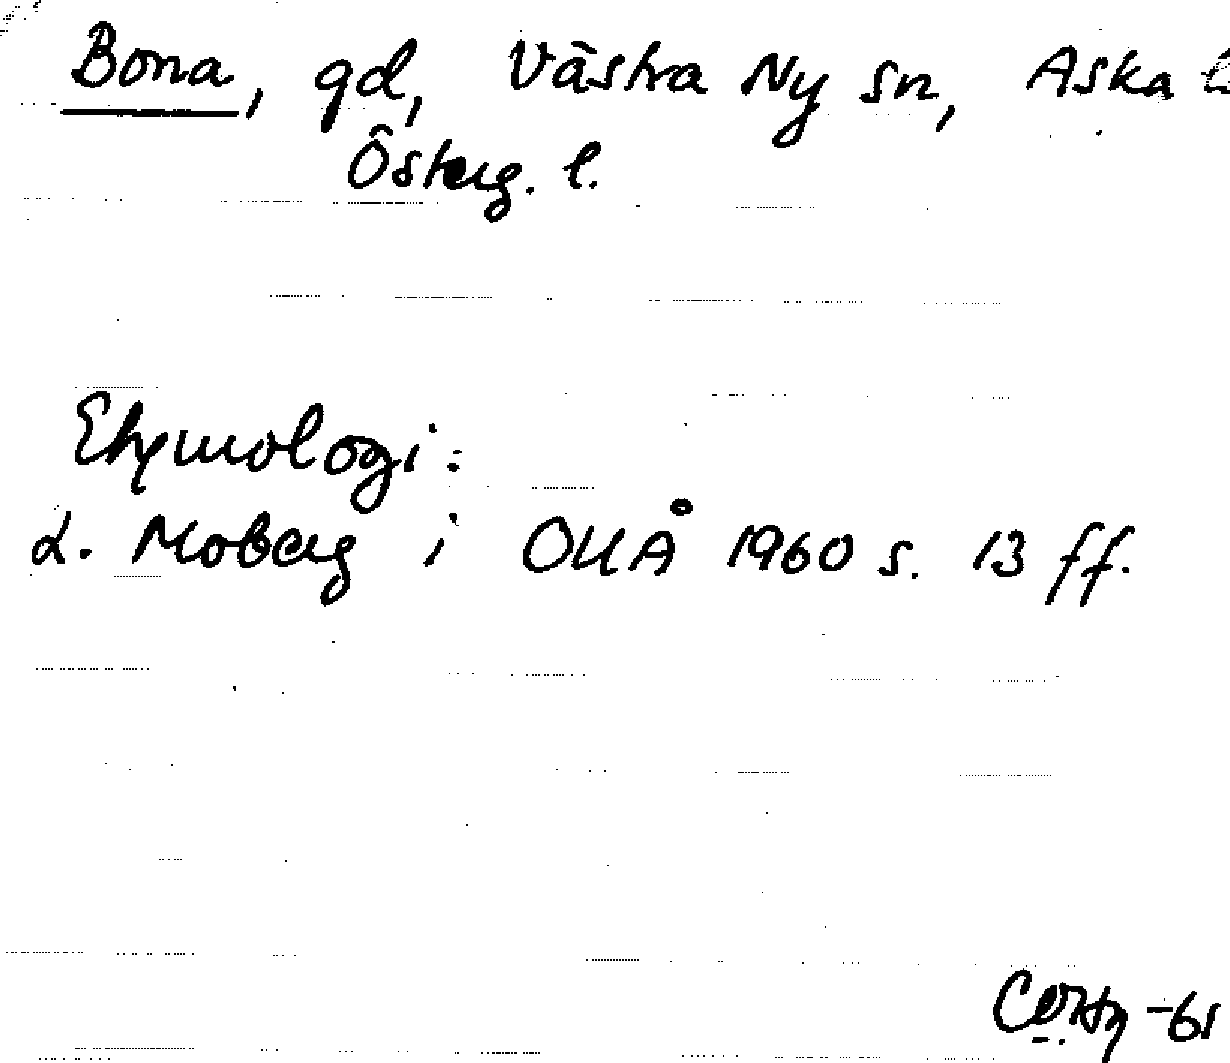 Bona, gd, Västra Ny sn, Aska
Österg. l.
Etymologi:
L. Moberg i OUÅ 1960 s. 13 ff.